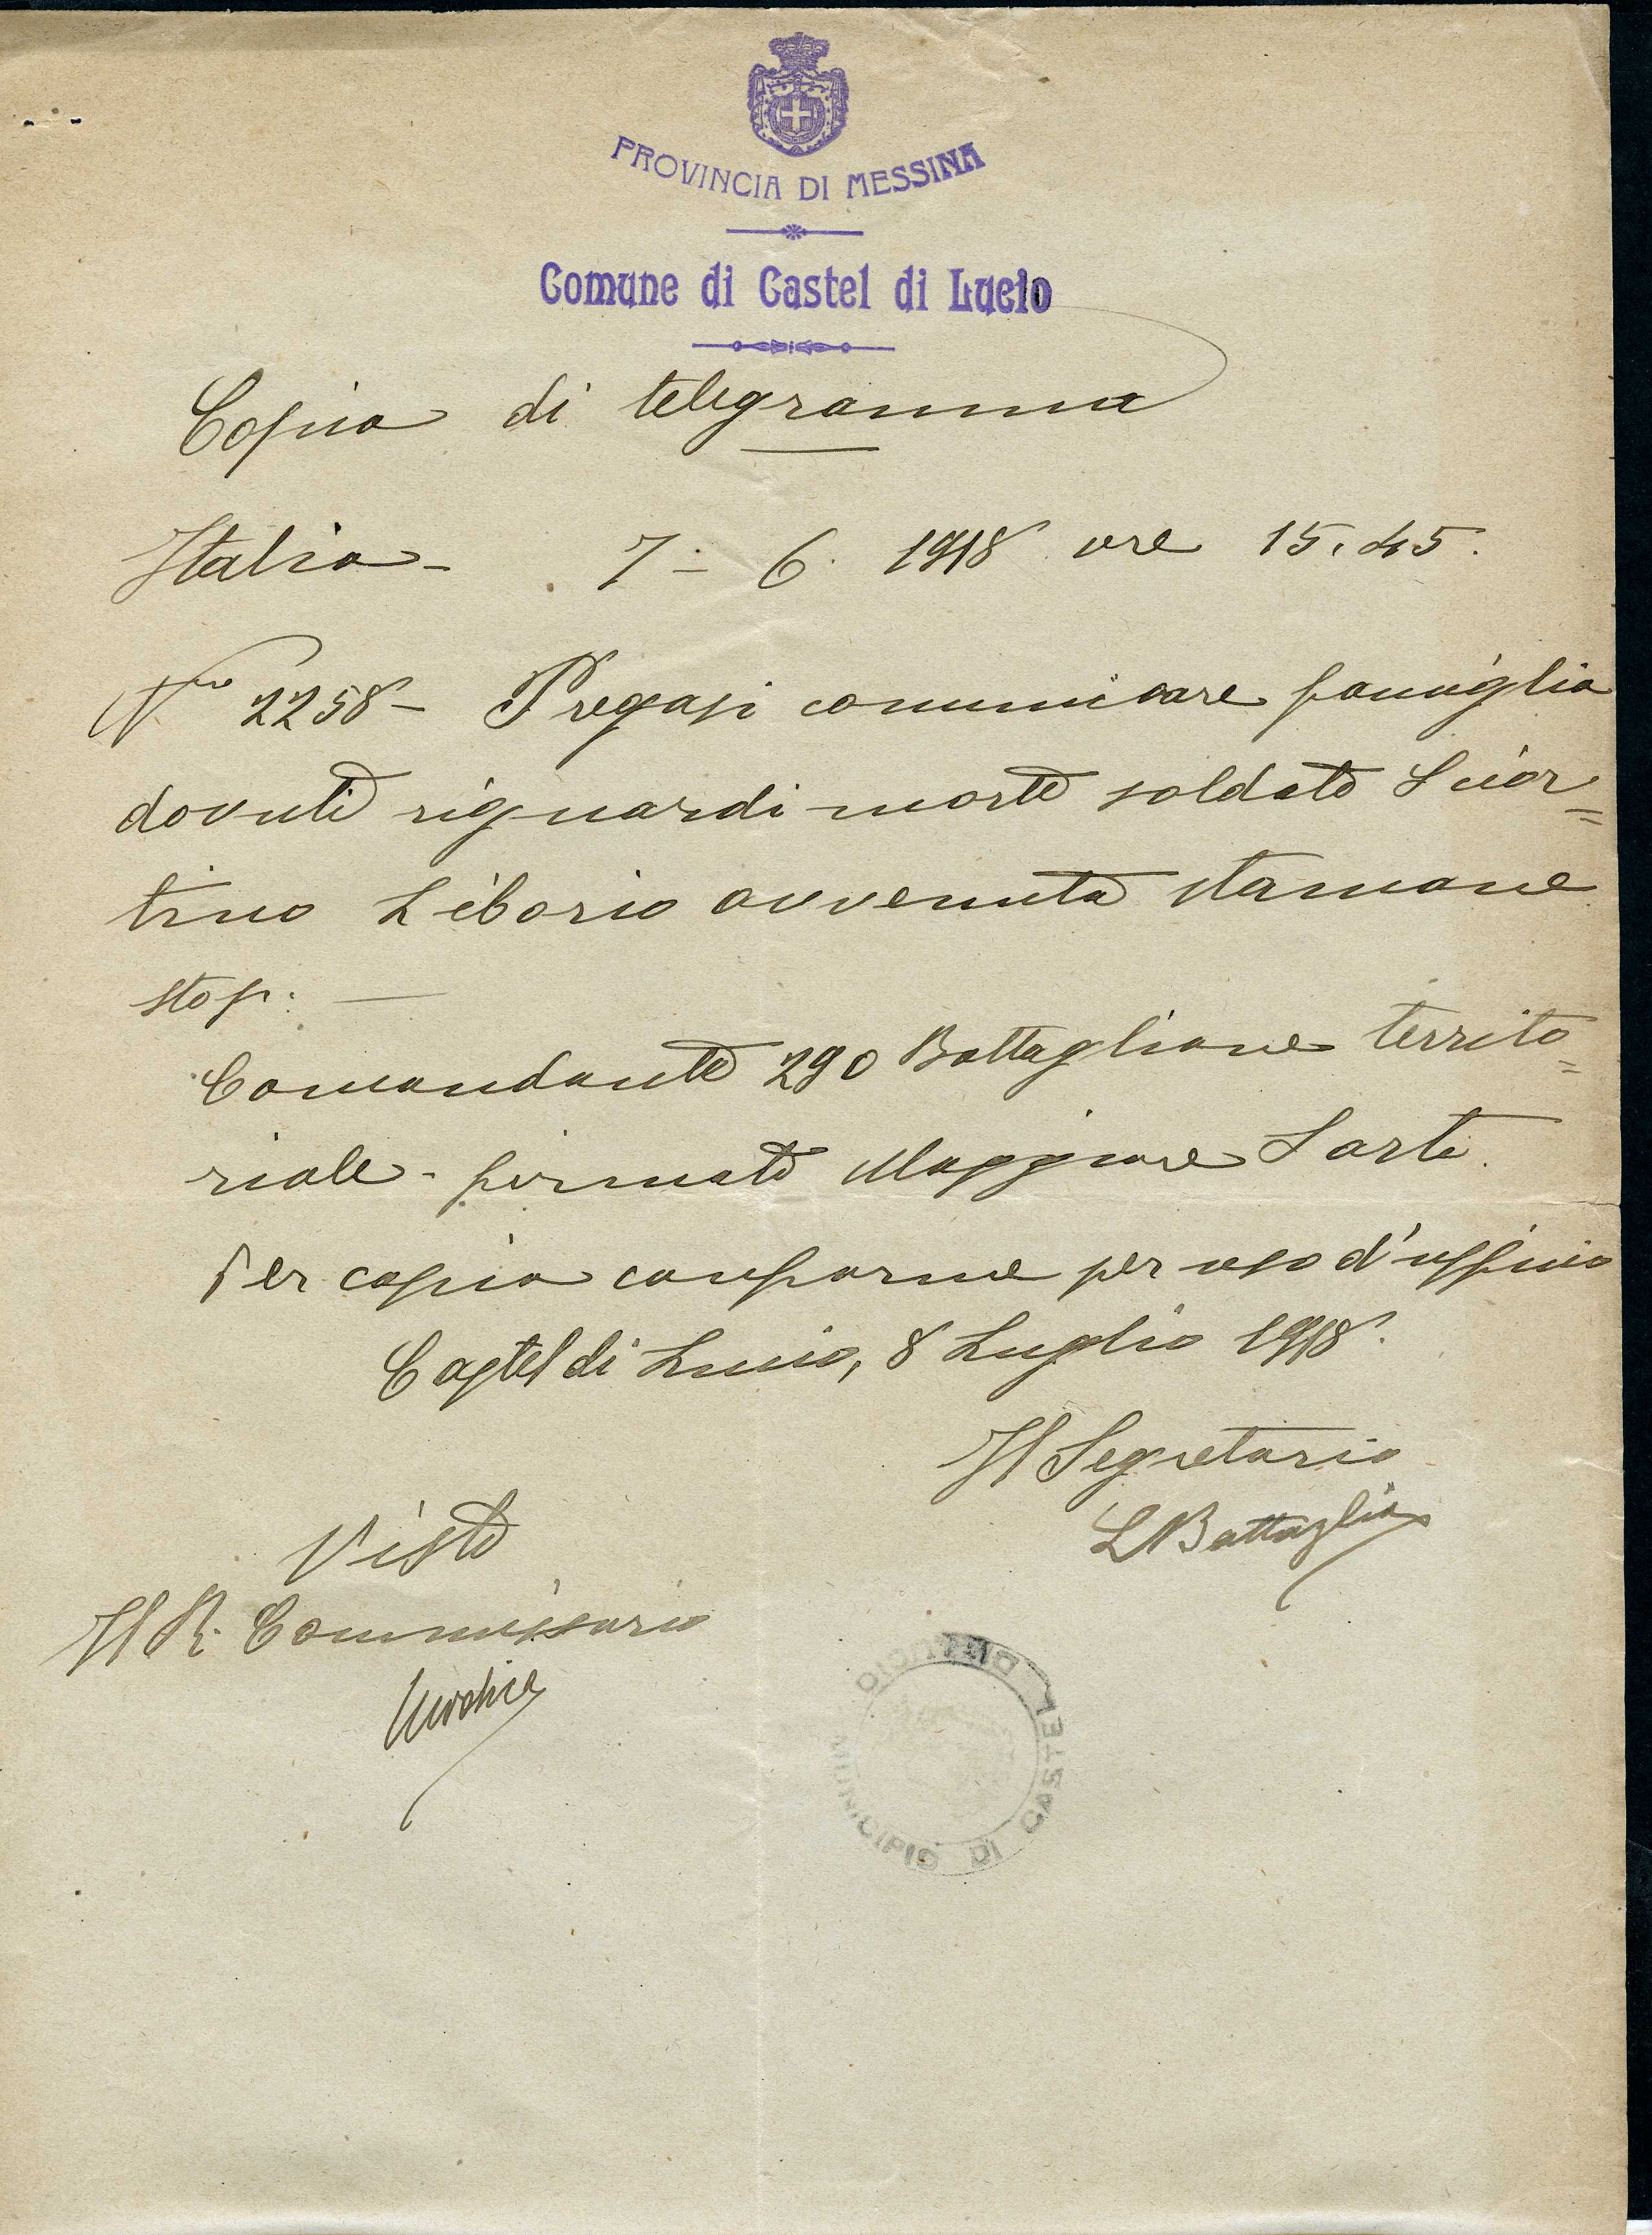 PROVINCIA DI MESSINA
Comune di Castel di Lucio
Copia di telegramma
Italia - 7 - 6. 1918 ore 15.45.
No 2258 - Pregasi comunicare famiglia
dovuti riguardi morte soldato Scior=
tino Liborio avvenuta stamane
stop. —
Comandante 290 Battaglione territo=
riale - firmato Maggiore Sarti.
Per copia conforme per uso d'ufficio
Castel di Lucio, 8 Luglio 1918.
Il Segretario
L Battaglia
Visto
Il R. Commissario
MUNICIPIO DI CASTEL DI LUCIO